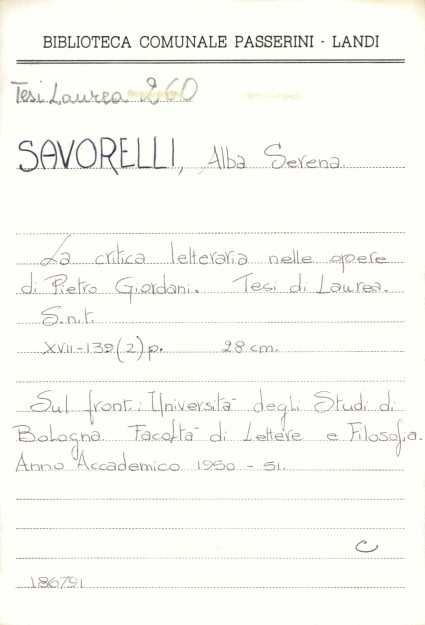 BIBLIOTECA COMUNALE PASSERINI - LANDI
Tesi Laurea 260
SAVORELLI, Alba Serena.
La critica letteraria nelle opere
di Pietro Giordani. Tesi di Laurea.
S.n.t.
XVII-139(2)p. 28 cm.
Sul front.: Università degli Studi di
Bologna. Facoltà di Lettere e Filosofia.
Anno Accademico 1950 - 51.
C
186791